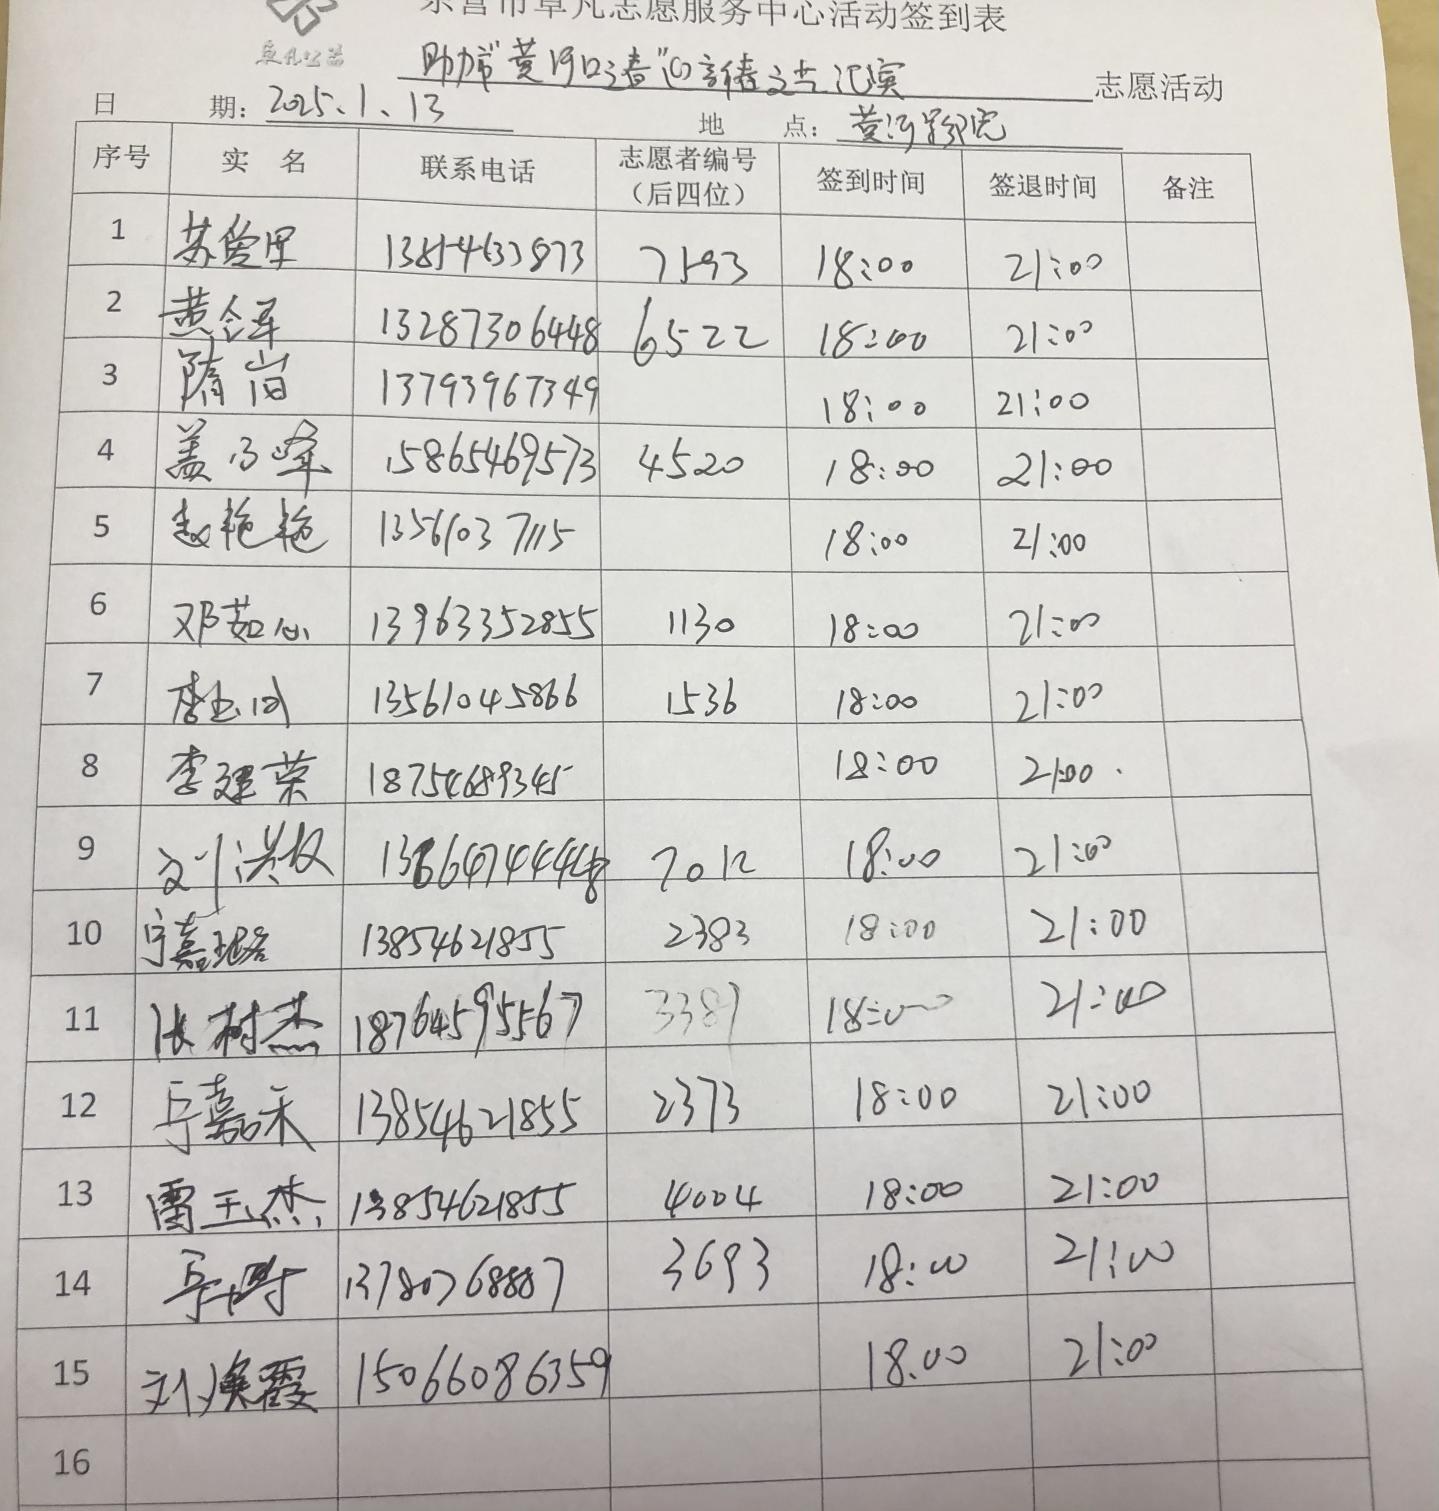 东营市草凡志愿服务中心活动签到表
草凡公益
助力“黄河口之春”迎新春文艺汇演 志愿活动
日 期：2025.1.13 地 点：黄河影院
序号 实 名 联系电话 志愿者编号（后四位） 签到时间 签退时间 备注
1 苏 7593 18:00 21:00
2 黄令军 13287306448 6522 18:00 21:00
3 隋 13793967349 18:00 21:00
4 盖乃峰 15865469573 4520 18:00 21:00
5 赵艳艳 13561037115 18:00 21:00
6 邓茹心 13963352855 1130 18:00 21:00
7 李 13561045866 1536 18:00 21:00
8 李建荣 18754689345 18:00 21:00
9 刘洪 7012 18:00 21:00
10 宁嘉珞 13854621855 2383 18:00 21:00
11 张树杰 18764595567 3381 18:00 21:00
12 宁嘉禾 13854621855 2373 18:00 21:00
13 雷玉杰 13854621855 4004 18:00 21:00
14 13780768887 3693 18:00 21:00
15 刘焕霞 15066086359 18.00 21:00
16